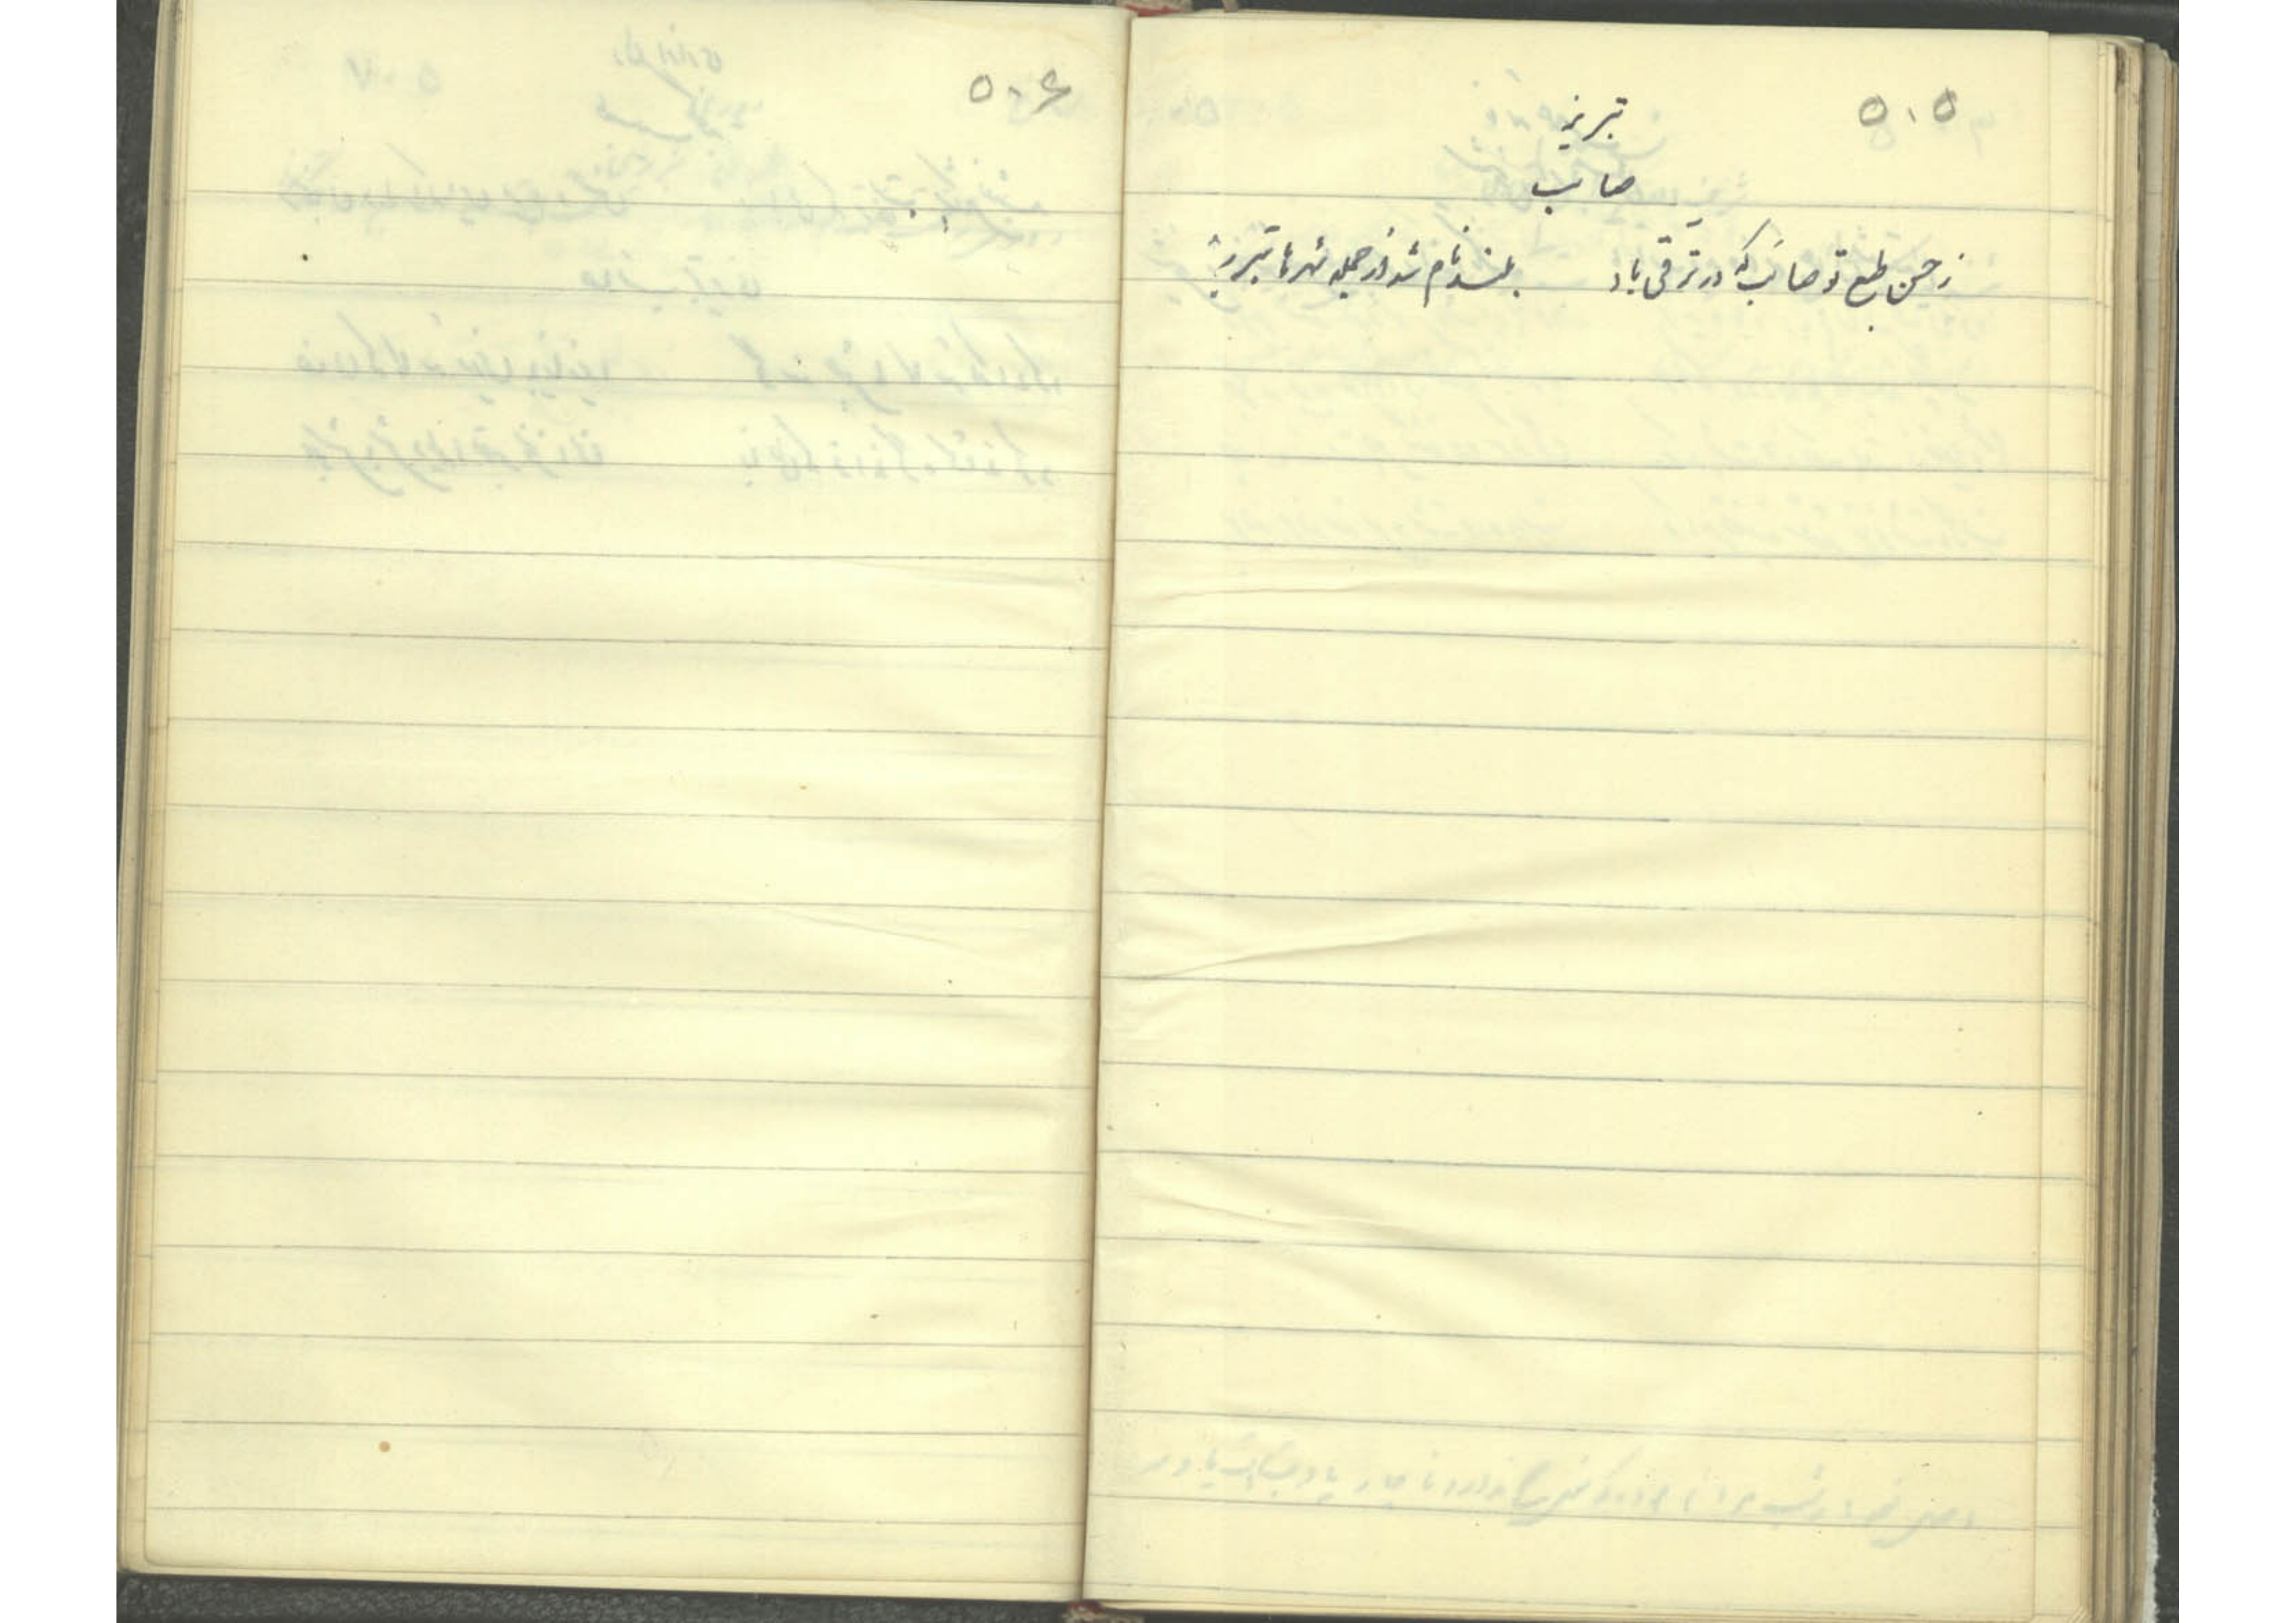 ۵۰۵
تبریز
صائب
ز حسن طبع تو صائب که در ترقی باد بلند نام شد از جمله شهرها تبریز
۵۰۶